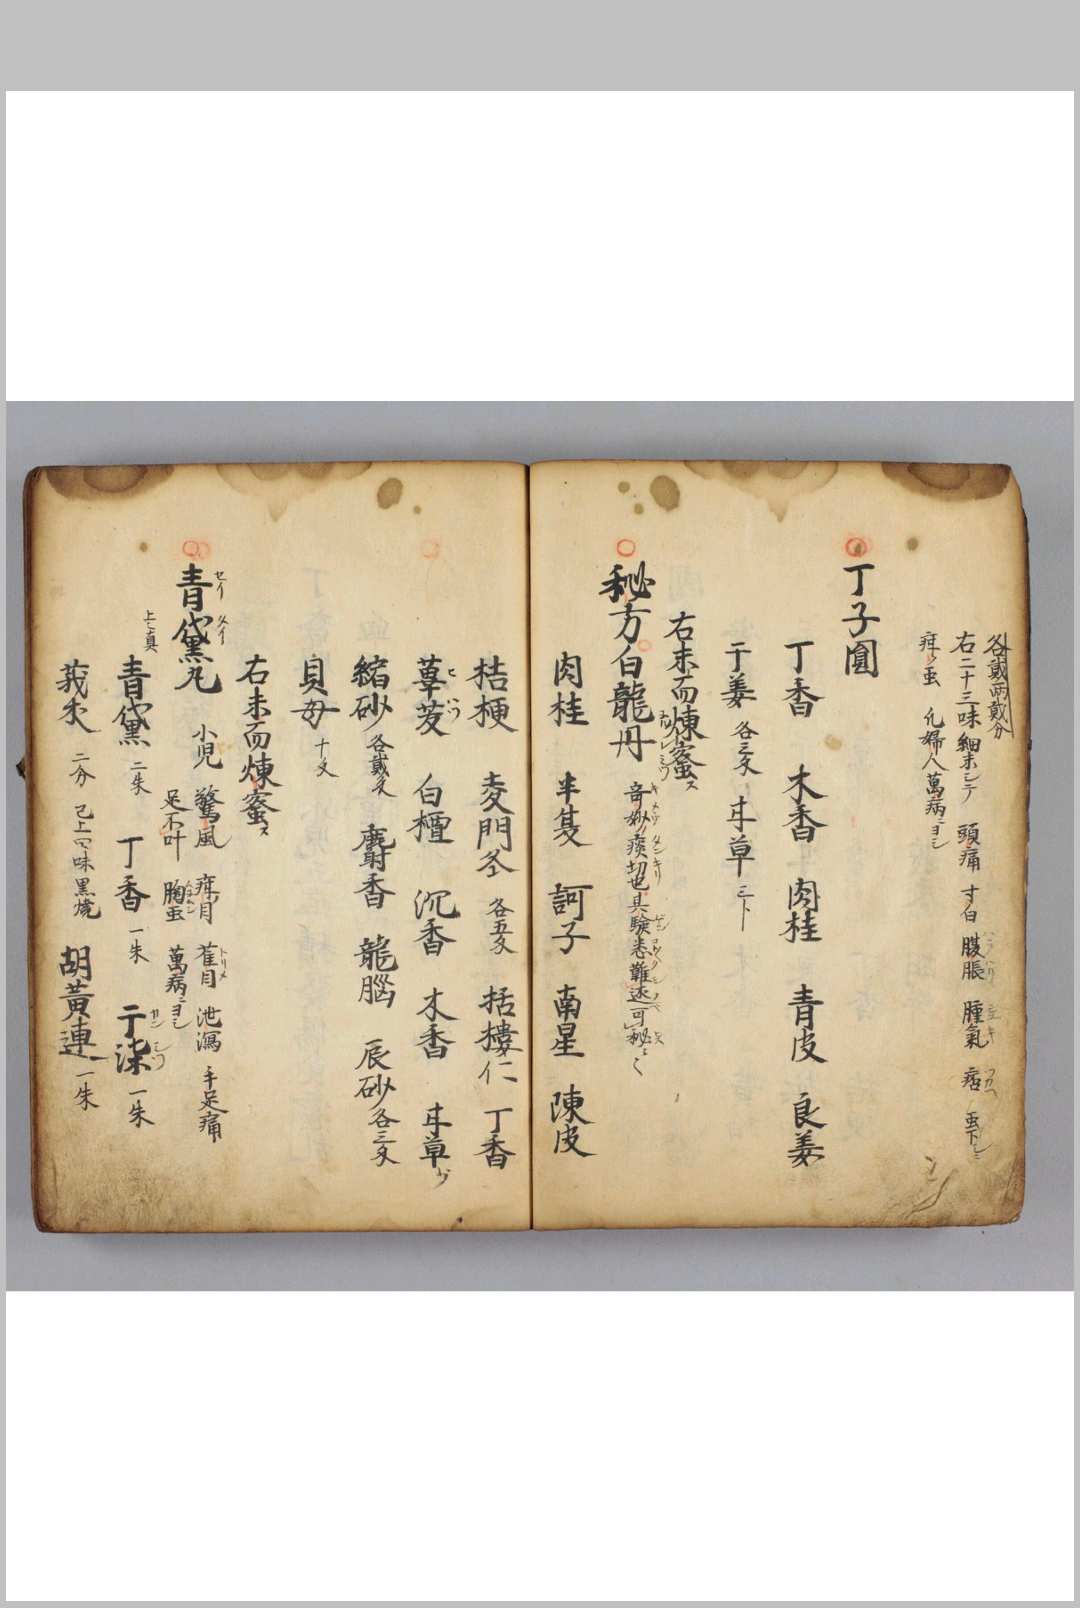 各貳両貳分
右二十三味細末シテ 頭痛 寸白 腹脹 腫氣 痞 虫下シニ
疳ノ虫 凡婦人萬病ニヨシ
丁子圓
丁香 木香 肉桂 青皮 良姜
干姜 各三文 甘草 三卜
右末而煉蜜ス
秘方白龍丹 奇妙ノ痰切也其験悉難述可秘々々
肉桂 半夏 訶子 南星 陳皮
桔梗 麦門冬 各五文 括樓仁 丁香
蓽茇 白檀 沉香 木香 甘草少
縮砂 各貳文 麝香 龍腦 辰砂各三文
貝母 十文
右末而煉蜜ス
青黛丸 小児 驚風 疳目 雀目 泄瀉 手足痛
足不叶 胸虫 萬病ニヨシ
上々真
青黛 二朱 丁香 一朱 干漆 一朱
莪朮 二分 已上四味黒焼 胡黄連 一朱